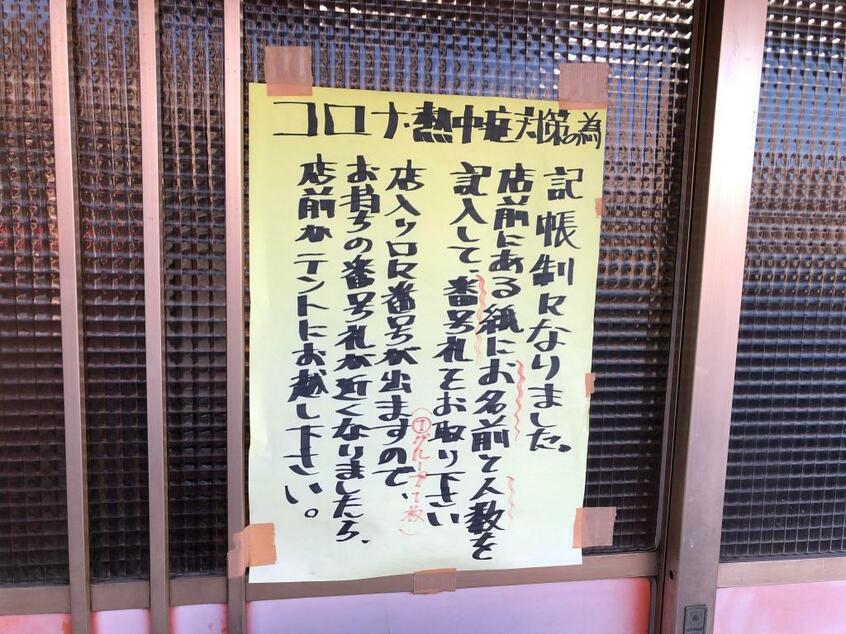 コロナ・熱中症対策の為
記帳制になりました。
店前にある紙にお名前と人数を
記入して、番号札でお取り下さい
(①グループ1枚)
店入り口に番号が出ますので、
お持ちの番号札が近くなりましたら、
店前かテントにお越し下さい。